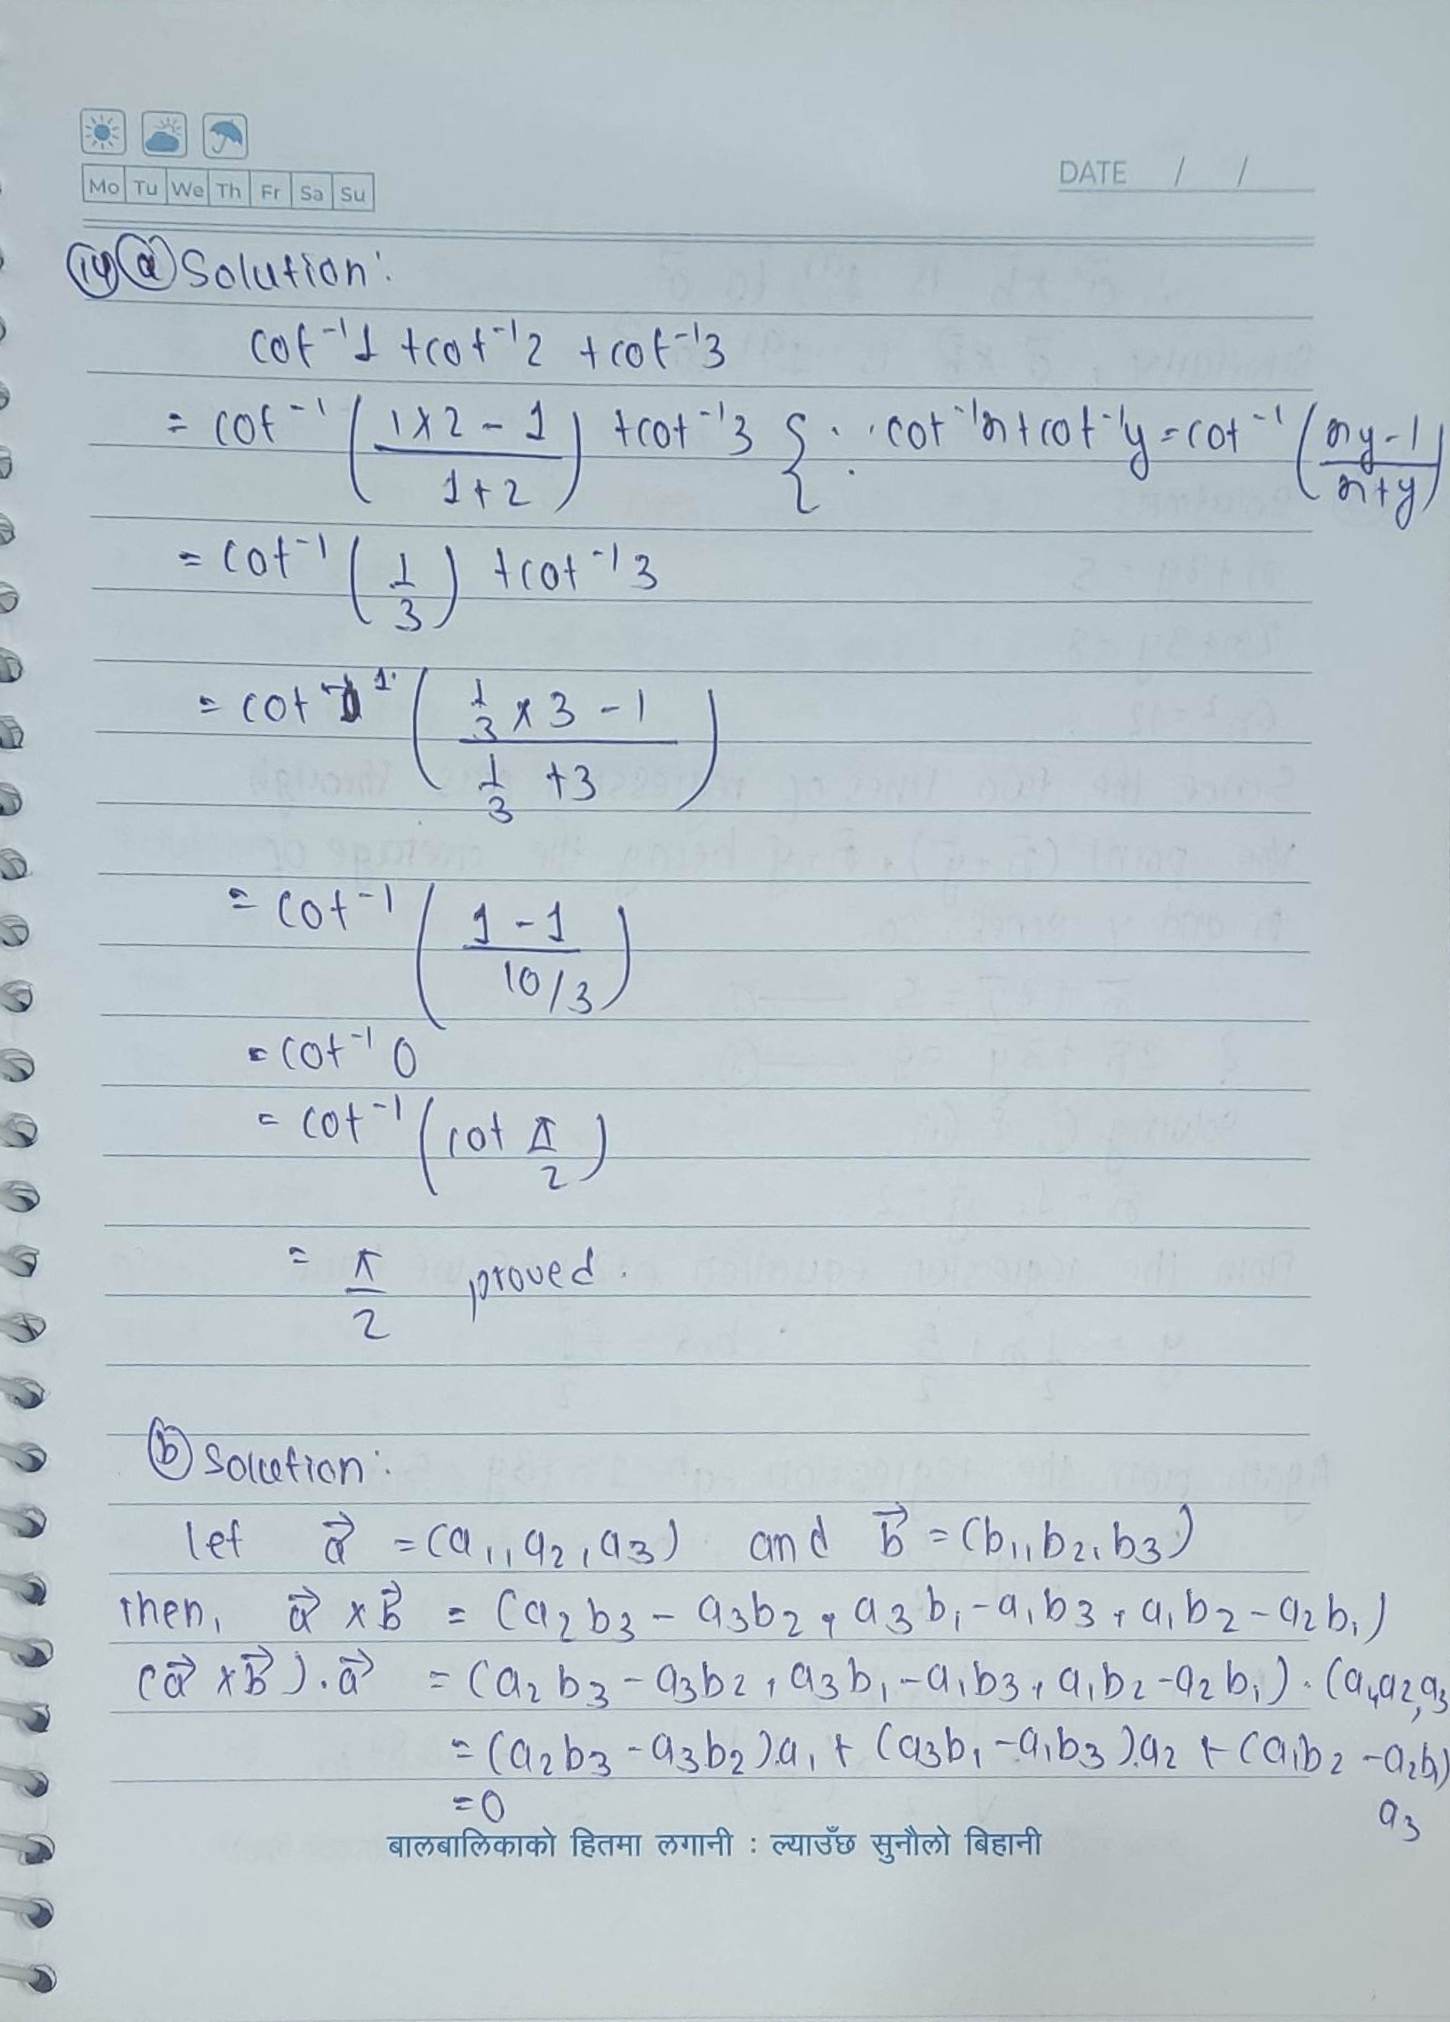 Mo Tu We Th Fr Sa Su
DATE / /
14 a Solution:
cot⁻¹1 + cot⁻¹2 + cot⁻¹3
= cot⁻¹((1×2-1)/(1+2)) + cot⁻¹3 { ∵ cot⁻¹x + cot⁻¹y = cot⁻¹((xy-1)/(x+y))
= cot⁻¹(1/3) + cot⁻¹3
= cot⁻¹((1/3 × 3 - 1)/(1/3 + 3))
= cot⁻¹((1-1)/(10/3))
= cot⁻¹0
= cot⁻¹(cot π/2)
= π/2 proved.
b Solution:
let a⃗ = (a₁, a₂, a₃) and b⃗ = (b₁, b₂, b₃)
then, a⃗ × b⃗ = (a₂b₃ - a₃b₂, a₃b₁ - a₁b₃, a₁b₂ - a₂b₁)
(a⃗ × b⃗).a⃗ = (a₂b₃ - a₃b₂, a₃b₁ - a₁b₃, a₁b₂ - a₂b₁).(a₁,a₂,a₃
= (a₂b₃ - a₃b₂).a₁ + (a₃b₁ - a₁b₃).a₂ + (a₁b₂ - a₂b₁)
a₃
= 0
बालबालिकाको हितमा लगानी : ल्याउँछ सुनौलो बिहानी